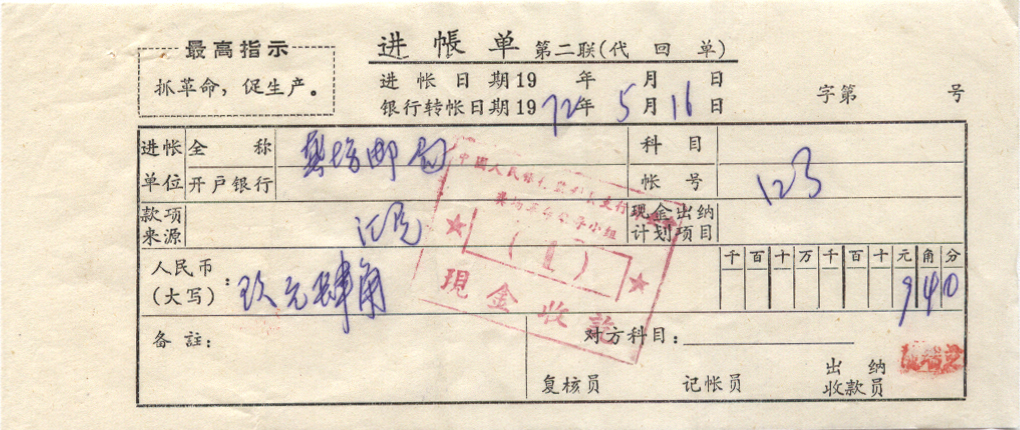 最高指示
抓革命，促生产。
进帳单 第二联(代回单)
进帐日期19 年 月 日
银行转帐日期1972年5月16日
字第 号
进帐单位
全称
邮局
开户银行
科目
帐号 123
款项来源
现金出纳计划项目
人民币(大写)：玖元肆角
千百十万千百十元角分
940
备註：
对方科目：
复核员 记帐员 出纳收款员
中国人民银行
(1)
現金收訖